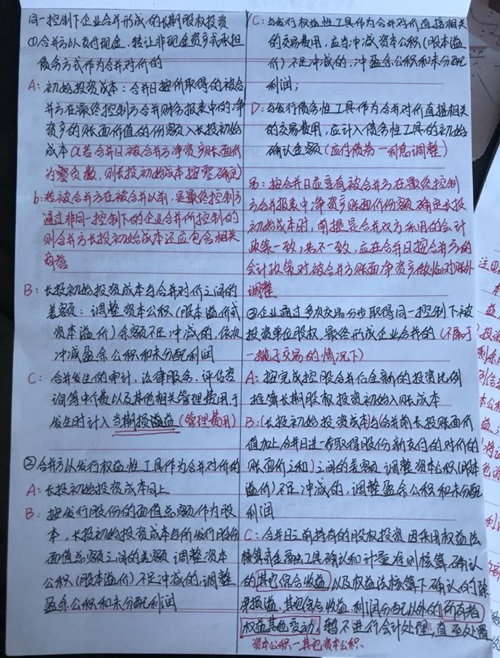 同一控制下企业合并形成的长期股权投资
①合并方以支付现金、转让非现金资产或承担
债务方式作为合并对价的
A: 初始投资成本:合并日按取得的被合
并方在最终控制方合并财务报表中的净
资产的账面价值的份额入长投初始
成本(若合并日被合并方净资产账面价
为零负数,则长投初始成本按零确定)
b: 若被合并方在被合并以前,是最终控制方
通过非同一控制下的企业合并所控制的
则合并方长投初始成本还应包含相关
商誉
B: 长投初始投资成本与合并对价之间的
差额:调整资本公积(股本溢价或
资本溢价)余额不足冲减的,依次
冲减盈余公积和未分配利润
C: 合并发生的审计、法律服务、评估咨
询等中介费以及其他相关管理费用于
发生时计入当期损益(管理费用)
②合并方以发行权益性工具作为合并对价的
A: 长投初始投资成本同上
B: 按发行股份的面值总额作为股
本,长投初始投资成本与所发行股份
面值总额之间的差额 调整资本
公积(股本溢价)不足冲减的,调整
盈余公积和未分配利润
C: 与发行权益性工具作为合并对价直接相关
的交易费用,应当冲减资本公积(股本溢
价)不足冲减的,冲盈余公积和未分配
利润;
D: 与发行债务性工具作为合并对价直接相关
的交易费用,应计入债务性工具的初始
确认金额(应付债券—利息调整)
③: 按合并日应享有被合并方在最终控制
方合并报表中净资产账面价份额确定长投
初始成本时,前提是合并双方采用的会计
政策一致,若不一致,应在合并日按合并方的
会计政策对被合并方账面净资产做临时账外
调整
④企业通过多次交易分步取得同一控制下被
投资单位股权,最终形成企业合并的(不属于
一揽子交易的情况下)
A: 按完成控股合并后全新的投资比例
推算长期股权投资初始入账成本
B: (长投初始投资成本)与(合并前长投账面价
值加上合并日进一步取得股份新支付的对价的
账面价之和)之间的差额 调整资本公积(股本
溢价)不足冲减的,调整盈余公积和未分配
利润
C: 合并日之前持有的股权投资因采用权益法
核算或金融工具确认和计量准则核算确认
的其他综合收益以及权益法核算下确认的除
净损益、其他综合收益、利润分配以外的所有者
权益其他变动,暂不进行会计处理,直至处置
资本公积—其他资本公积